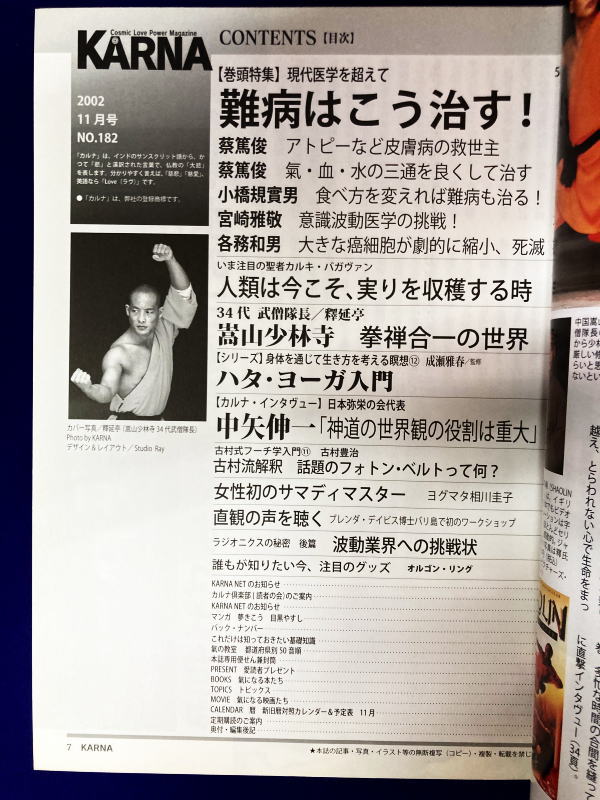 Cosmic Love Power Magazine
KARNA
CONTENTS【目次】
2002
11月号
NO.182
「カルナ」は、インドのサンスクリット語から、か
つて「悲」と漢訳された言葉で、仏教の「大悲」
を表します。分かりやすく言えば、「慈悲」「慈愛」、
英語なら「Love（ラヴ）」です。
●「カルナ」は、弊社の登録商標です。
カバー写真／釋延亭（嵩山少林寺34代武僧隊長）
Photo by KARNA
デザイン＆レイアウト／Studio Ray
【巻頭特集】現代医学を超えて
難病はこう治す！
蔡篤俊　アトピーなど皮膚病の救世主
蔡篤俊　氣・血・水の三通を良くして治す
小橋規實男　食べ方を変えれば難病も治る！
宮崎雅敬　意識波動医学の挑戦！
各務和男　大きな癌細胞が劇的に縮小、死滅
いま注目の聖者カルキ・バガヴァン
人類は今こそ、実りを収穫する時
34代 武僧隊長／釋延亭
嵩山少林寺　拳禅合一の世界
【シリーズ】身体を通じて生き方を考える瞑想⑫　成瀬雅春／監修
ハタ・ヨーガ入門
【カルナ・インタヴュー】日本弥栄の会代表
中矢伸一「神道の世界観の役割は重大」
古村式フーチ学入門⑪　古村豊治
古村流解釈　話題のフォトン・ベルトって何？
女性初のサマディマスター　ヨグマタ相川圭子
直観の声を聴く　ブレンダ・デイビス博士バリ島で初のワークショップ
ラジオニクスの秘密　後篇　波動業界への挑戦状
誰もが知りたい今、注目のグッズ　オルゴン・リング
KARNA NETのお知らせ
カルナ倶楽部［読者の会］のご案内
KARNA NETのお知らせ
マンガ　夢きこう　目黒やすし
バック・ナンバー
これだけは知っておきたい基礎知識
氣の教室　都道府県別50音順
本誌専用便せん兼封筒
PRESENT　愛読者プレゼント
BOOKS　氣になる本たち
TOPICS　トピックス
MOVIE　氣になる映画たち
CALENDAR　暦　新旧暦対照カレンダー＆予定表　11月
定期購読のご案内
奥付・編集後記
7　KARNA
★本誌の記事・写真・イラスト等の無断複写（コピー）・複製・転載を禁じ
越え、とらわれない心で生命をまっ
に直撃インタヴュー（34頁）。